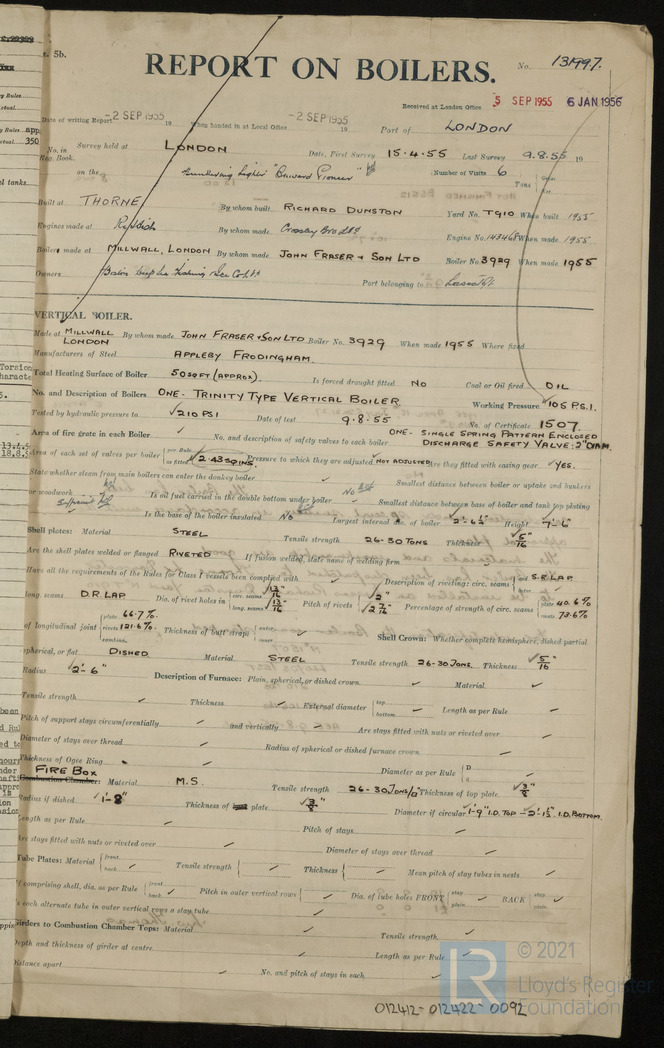 5b.
REPORT ON BOILERS.
No. 131997.
Received at London Office 5 SEP 1955 6 JAN 1956
Date of writing Report -2 SEP 1955 19 When handed in at Local Office -2 SEP 1955 19. Port of LONDON
No. in Reg. Book. Survey held at LONDON Date, First Survey 15.4.55 Last Survey 9.8.55 19
on the Bunkering Lighter "Onward Pioneer" Number of Visits 6
Tons Gross Net
Built at THORNE By whom built RICHARD DUNSTON Yard No. T910 When built 1955
Engines made at By whom made Crossley Bros Engine No. When made 1955
Boilers made at MILLWALL, LONDON By whom made JOHN FRASER & SON LTD Boiler No. 3929 When made 1955
Owners Port belonging to
VERTICAL BOILER.
Made at MILLWALL LONDON By whom made JOHN FRASER & SON LTD Boiler No. 3929 When made 1955 Where fixed
Manufacturers of Steel APPLEBY FRODINGHAM.
Total Heating Surface of Boiler 50 SQ FT (APPROX) Is forced draught fitted NO Coal or Oil fired OIL
No. and Description of Boilers ONE - TRINITY TYPE VERTICAL BOILER Working Pressure 105 P.S.I.
Tested by hydraulic pressure to 210 PSI Date of test 9.8.55 No. of Certificate 1507.
Area of fire grate in each Boiler No. and description of safety valves to each boiler ONE - SINGLE SPRING PATTERN ENCLOSED DISCHARGE SAFETY VALVE: 2" DIAM.
Area of each set of valves per boiler per Rule as fitted 2.43 SQ INS. Pressure to which they are adjusted NOT ADJUSTED Are they fitted with easing gear YES.
State whether steam from main boilers can enter the donkey boiler Smallest distance between boiler or uptake and bunkers
or woodwork Is oil fuel carried in the double bottom under boiler No Smallest distance between base of boiler and tank top plating
Is the base of the boiler insulated No Largest internal dia. of boiler 2'-6½" Height 7'-6"
Shell plates: Material STEEL Tensile strength 26-30 TONS Thickness 5/16
Are the shell plates welded or flanged RIVETED If fusion welded, state name of welding firm
Have all the requirements of the Rules for Class I vessels been complied with Description of riveting: circ. seams end S.R. LAP
long. seams D.R. LAP. Dia. of rivet holes in circ. seams 13/16 long. seams 13/16 Pitch of rivets 2" 2 7/16 Percentage of strength of circ. seams plate 40.6% rivets 73.6%
of longitudinal joint plate 66.7% rivets 121.6% combin. Thickness of butt straps outer inner Shell Crown: Whether complete hemisphere, dished partial
spherical, or flat DISHED Material STEEL Tensile strength 26-30 TONS. Thickness 5/16
Radius 2'-6" Description of Furnace: Plain, spherical, or dished crown Material
Tensile strength Thickness External diameter top bottom Length as per Rule
Pitch of support stays circumferentially and vertically Are stays fitted with nuts or riveted over
Diameter of stays over thread Radius of spherical or dished furnace crown
Thickness of Ogee Ring Diameter as per Rule D d
FIRE BOX
Combustion Chamber: Material M.S. Tensile strength 26-30 TONS/□" Thickness of top plate 3/8"
Radius if dished 1'-8" Thickness of plate 3/8" Diameter if circular 1'-9" I.D. TOP - 2'-1½" I.D. BOTTOM.
Length as per Rule Pitch of stays
Are stays fitted with nuts or riveted over Diameter of stays over thread
Tube Plates: Material front back Tensile strength Thickness Mean pitch of stay tubes in nests
If comprising shell, dia. as per Rule front back Pitch in outer vertical rows Dia. of tube holes FRONT stay plain BACK stay plain
Is each alternate tube in outer vertical rows a stay tube
Girders to Combustion Chamber Tops: Material Tensile strength
Depth and thickness of girder at centre Length as per Rule
Distance apart No. and pitch of stays in each
© 2021
Lloyd's Register
Foundation
012412-012422-0092